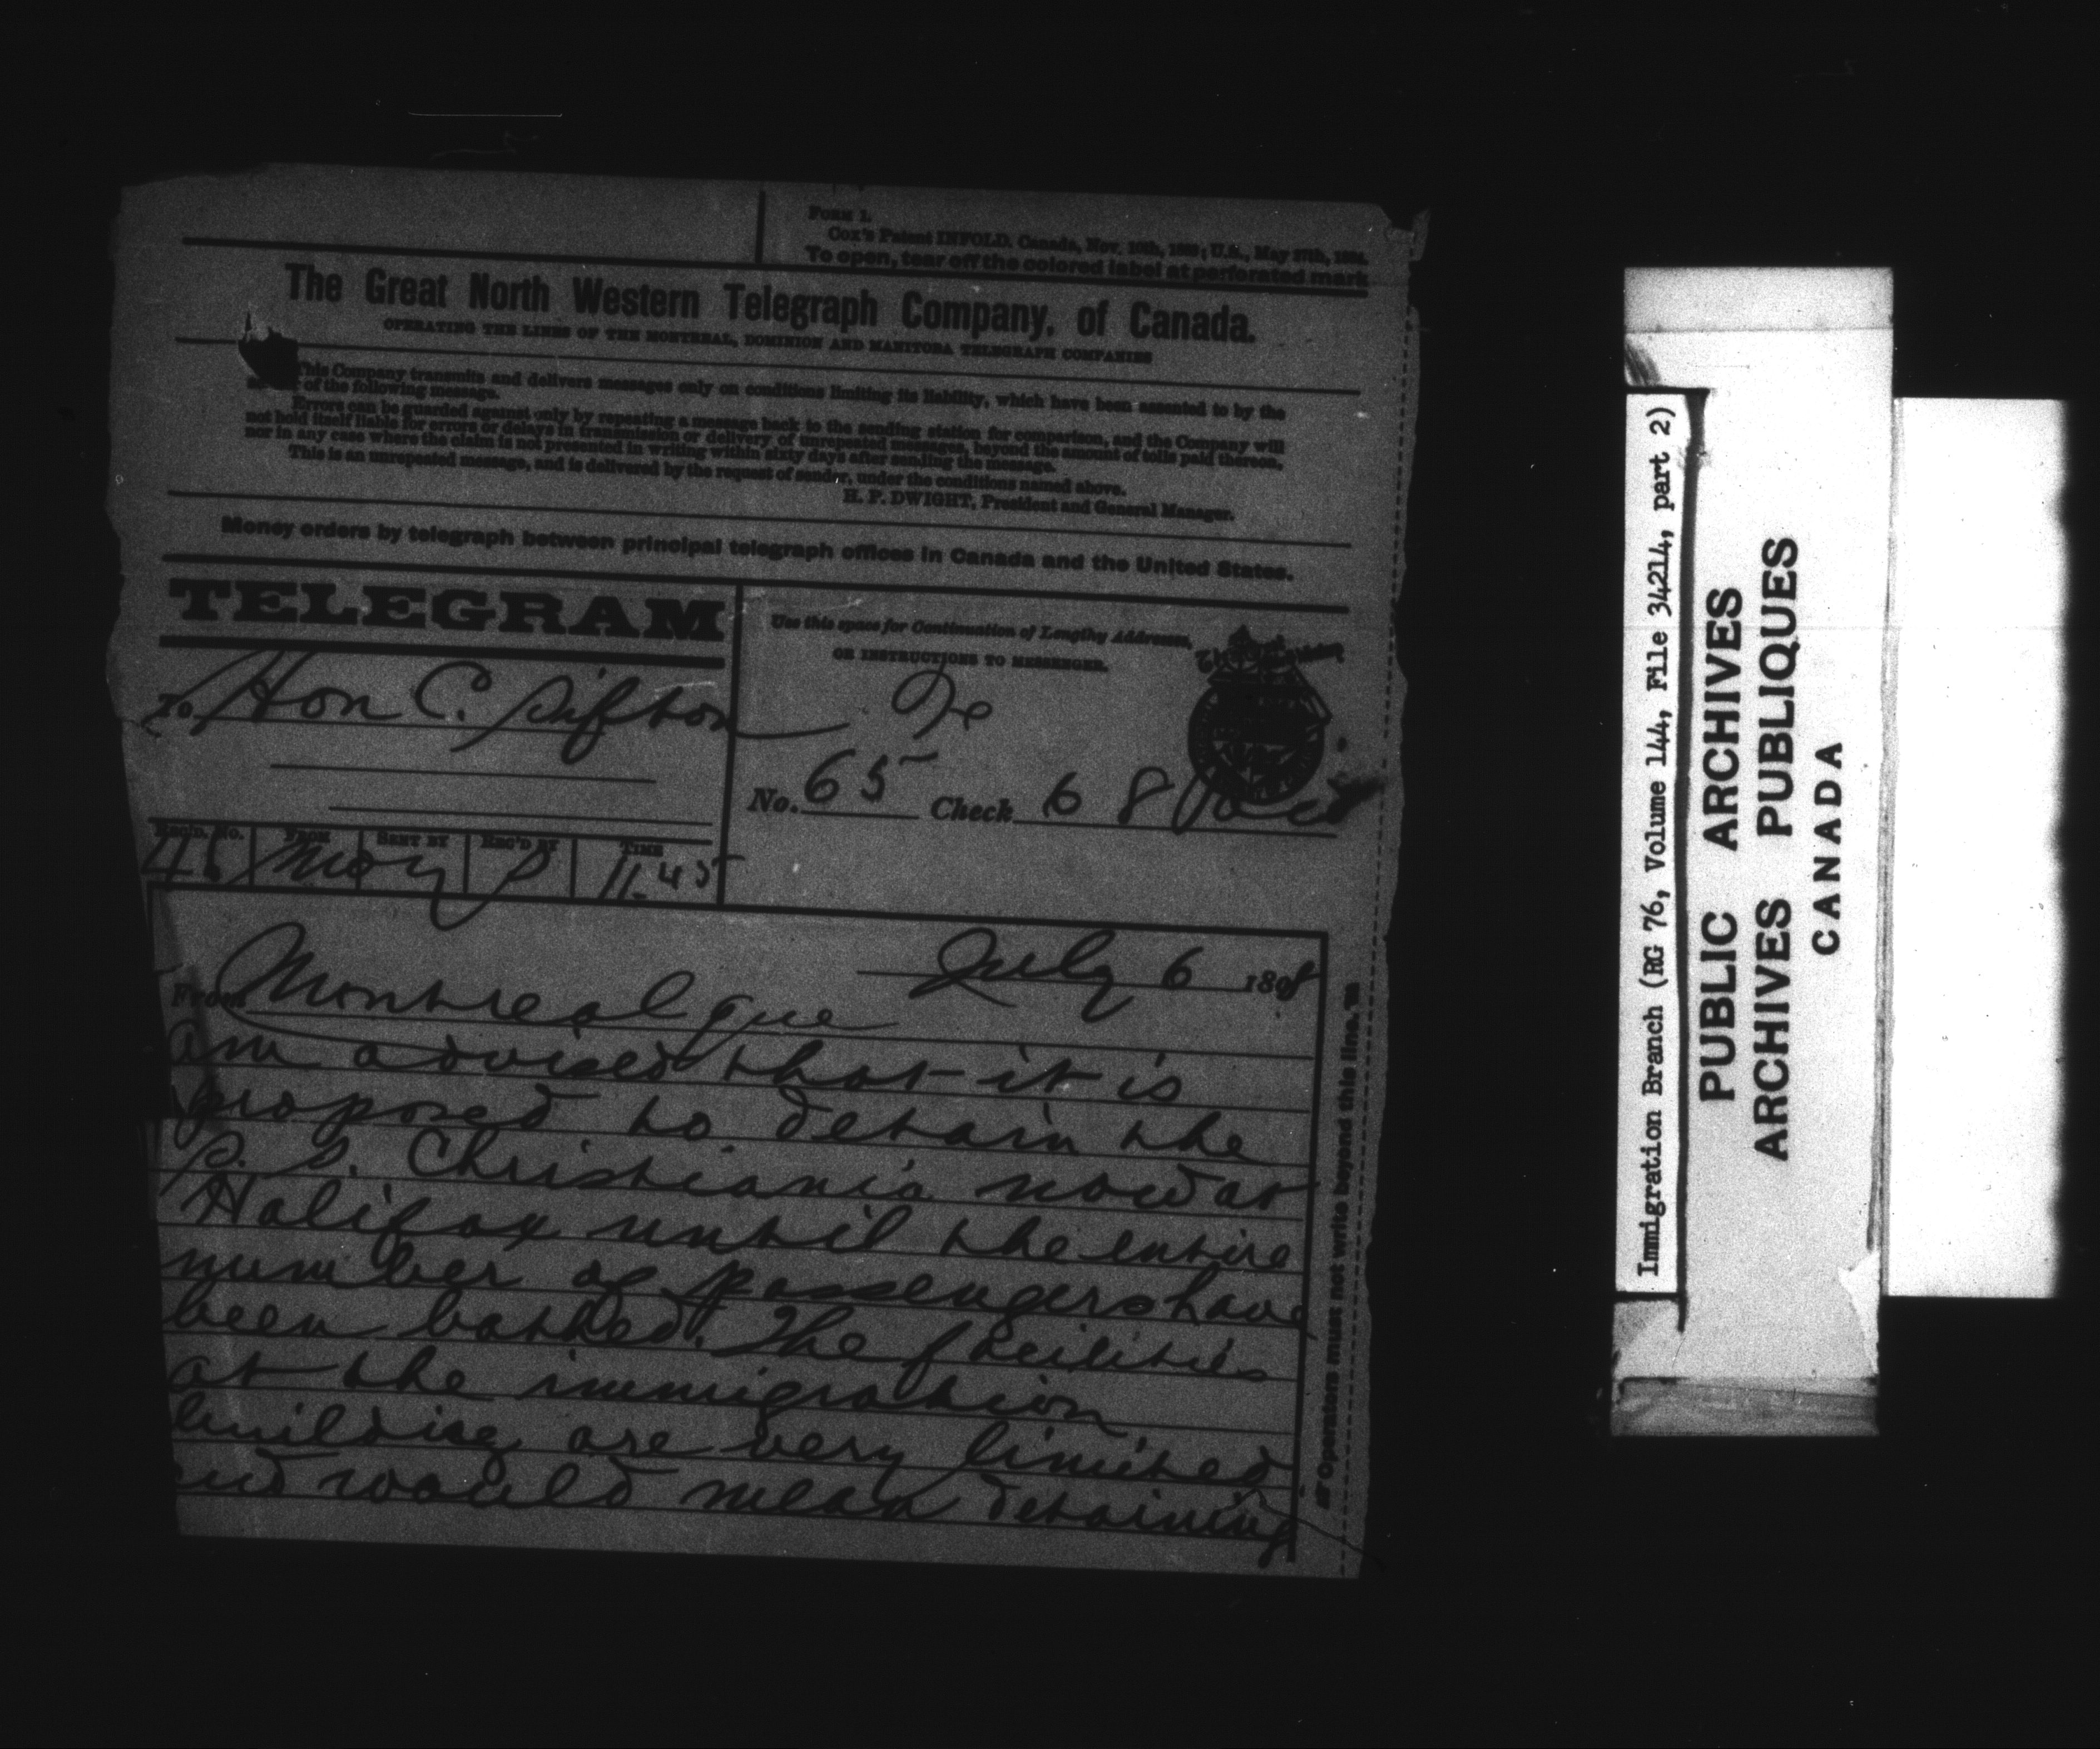 FORM 1.
Cox's Patent INFOLD. Canada, Nov. 10th, ; U.S., May 27th,
To open, tear off the colored label at perforated mark
The Great North Western Telegraph Company, of Canada.
OPERATING THE LINES OF THE MONTREAL, DOMINION AND MANITOBA TELEGRAPH COMPANIES
This Company transmits and delivers messages only on conditions limiting its liability, which have been assented to by the
of the following message.
Errors can be guarded against only by repeating a message back to the sending station for comparison, and the Company will
not hold itself liable for errors or delays in transmission or delivery of unrepeated messages, beyond the amount of tolls paid thereon,
nor in any case where the claim is not presented in writing within sixty days after sending the message.
This is an unrepeated message, and is delivered by the request of sender, under the conditions named above.
H. P. DWIGHT, President and General Manager.
Money orders by telegraph between principal telegraph offices in Canada and the United States.
TELEGRAM
Use this space for Continuation of Lengthy Addresses,
OR INSTRUCTIONS TO MESSENGER.
To Hon C. Sifton
No. 65 Check 68 Paid
REC'D. No. FROM SENT BY REC'D BY TIME
11.45
July 6 1898
From Montreal Que
Am advised that it is
proposed to detain the
S. S. Christiania now at
Halifax until the entire
number of passengers have
been bathed. The facilities
at the immigration
building are very limited
and would mean detaining
Operators must not write beyond this line.
Immigration Branch (RG 76, Volume 144, File 34214, part 2)
PUBLIC ARCHIVES
ARCHIVES PUBLIQUES
CANADA